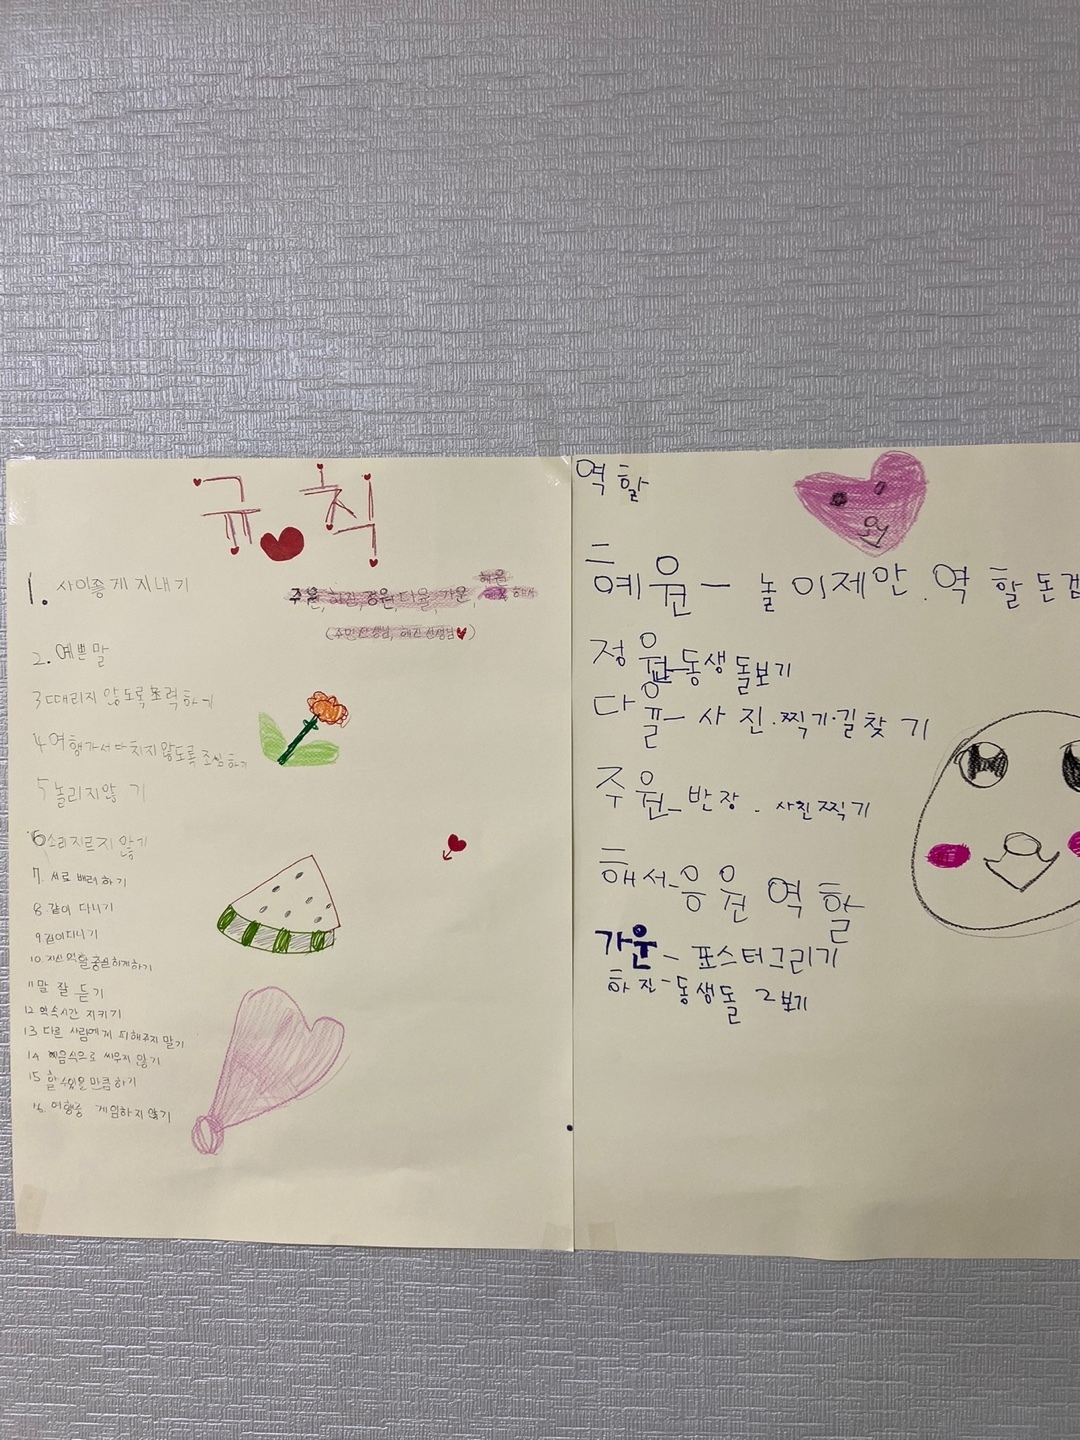 규칙
1. 사이좋게 지내기
주원, 하진, 정원, 다울, 가운,
2. 예쁜말
3 때리지 않도록 노력하기
4 여행가서 다치지 않도록 조심하기
5 놀리지않기
6 소리지르지 않기
7. 서로 배려하기
8 같이 다니기
9
10. 자신역할 충실하게하기
11 말 잘 듣기
12 약속시간 지키기
13 다른 사람에게 피해주지 말기
14 음식으로 싸우지 않기
15 할 수있는 만큼하기
16. 여행중 게임하지 않기
역할
혜원 - 놀이제안. 역할 돈
정원 - 동생 돌보기
다 - 사진.찍기.길찾기
주원 - 반장. 사진찍기
해서 - 응원 역할
가운 - 포스터그리기
하진 - 동생돌보기